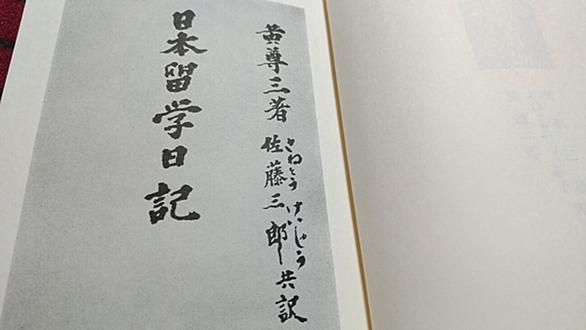 黄尊三著
さねとうけいしゅう
佐藤三郎共訳
日本留学日記